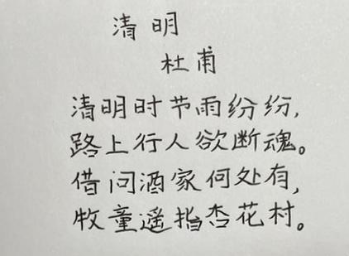 清明
杜甫
清明时节雨纷纷,
路上行人欲断魂。
借问酒家何处有,
牧童遥指杏花村。